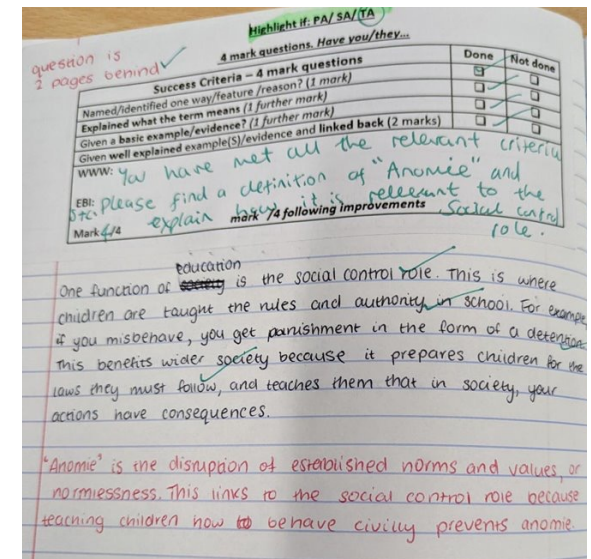 Highlight if: PA/ SA/ TA
question is
2 pages behind
4 mark questions. Have you/they...
Success Criteria – 4 mark questions Done Not done
Named/identified one way/feature/reason? (1 mark)
Explained what the term means (1 further mark)
Given a basic example/evidence? (1 further mark)
Given well explained example(S)/evidence and linked back (2 marks)
WWW: You have met all the relevant criteria
EBI: please find a definition of "Anomie" and
explain how it is relevant to the
Social control
role.
Mark 4/4 mark /4 following improvements
education
One function of society is the social control role. This is where
children are taught the rules and authority in school. For example
if you misbehave, you get punishment in the form of a detention.
This benefits wider society because it prepares children for the
laws they must follow, and teaches them that in society, your
actions have consequences.
"Anomie" is the disruption of established norms and values, or
normlessness. This links to the social control role because
teaching children how to behave civilly prevents anomie.